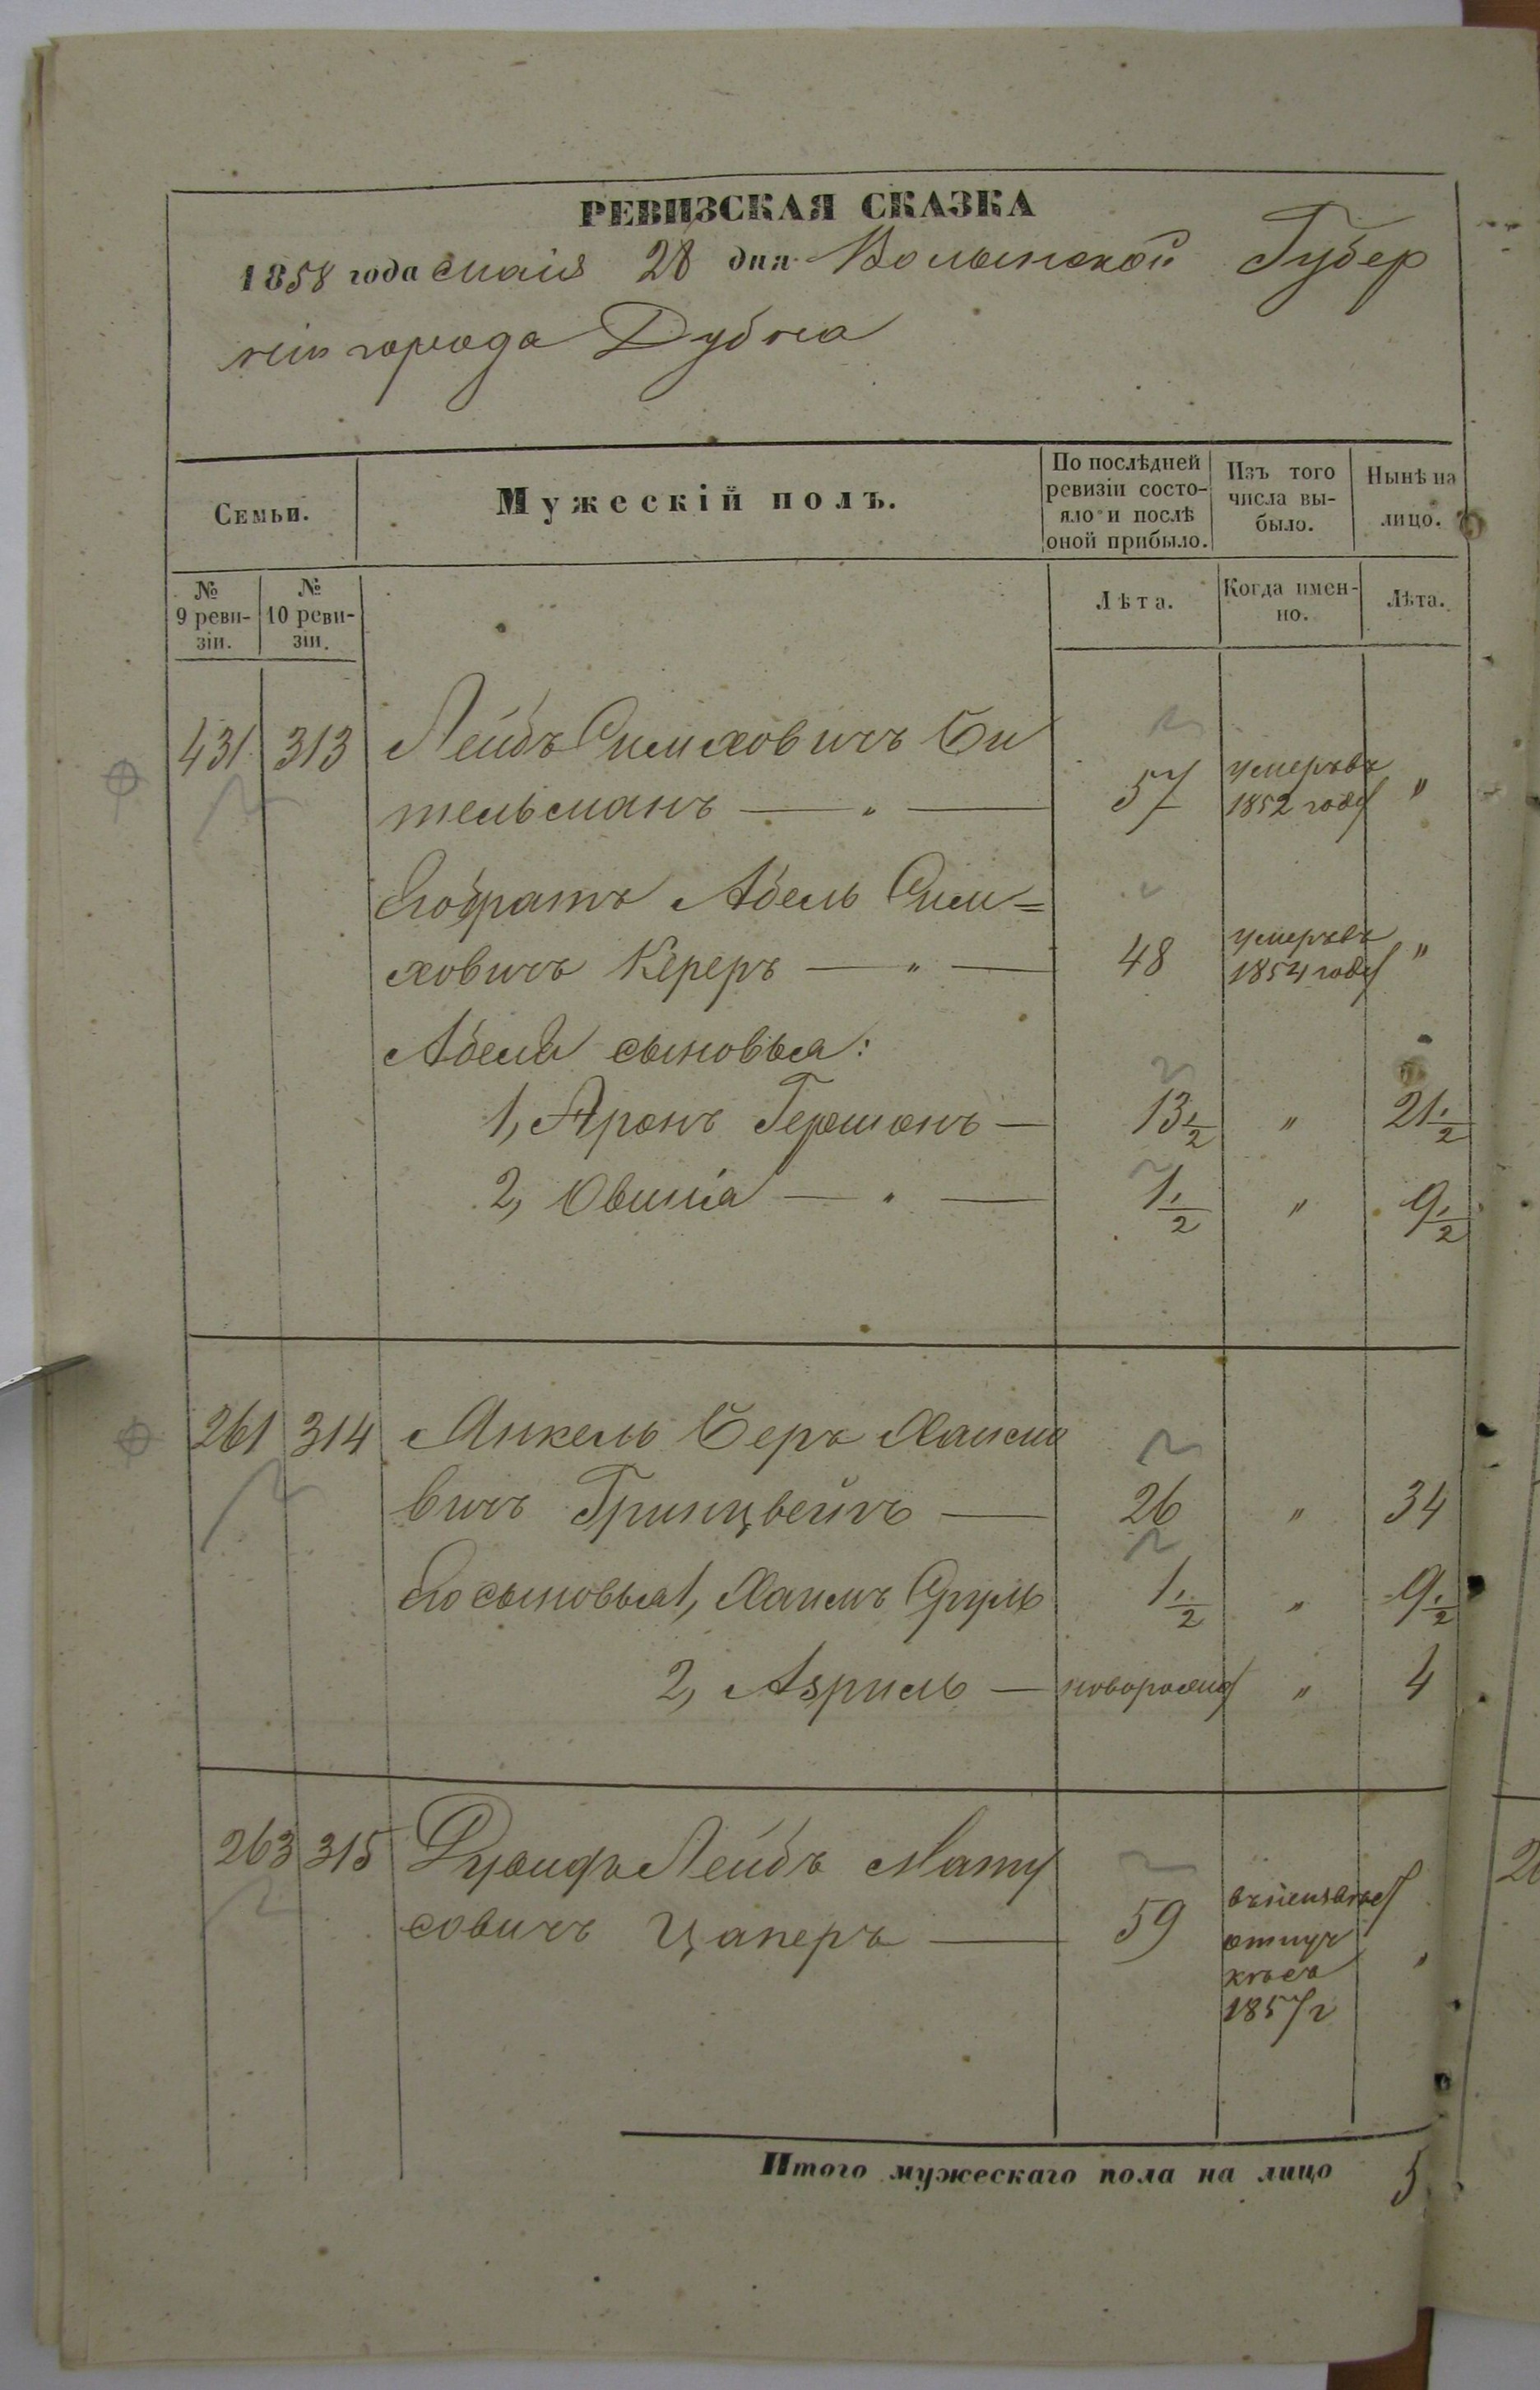 РЕВИЗСКАЯ СКАЗКА
1858 года маія 28 дня Волынской Губер
ніи города Дубна
Семьи.
Мужескій полъ.
По послѣдней ревизіи состо-
яло и послѣ оной прибыло.
Изъ того числа вы-
было.
Нынѣ на лицо.
№ 9 реви-
зіи.
№ 10 реви-
зіи.
Лѣта.
Когда имен-
но.
Лѣта.
431 313 Лейбъ Симховичъ Би
тельманъ — „ — 57 умеръ въ 1852 году „
Его братъ Абель Сим=
ховичъ Кереръ — „ — 48 умеръ въ 1854 году „
Абеля сыновья:
1, Аронъ Гершонъ — 13 1/2 „ 21 1/2
2, Овшіа — „ — 1 1/2 „ 9 1/2
261 314 Янкель Беръ Хаимо
вичъ Гринцвейгъ — 26 „ 34
Его сыновья 1, Хаимъ Сруль 1 1/2 „ 9 1/2
2, Азриль — новорожд „ 4
263 315 Лейбъ Мату
совичъ Цаперъ — 59
отлуч
кѣ съ
1857 г „
Итого мужескаго пола на лицо 5